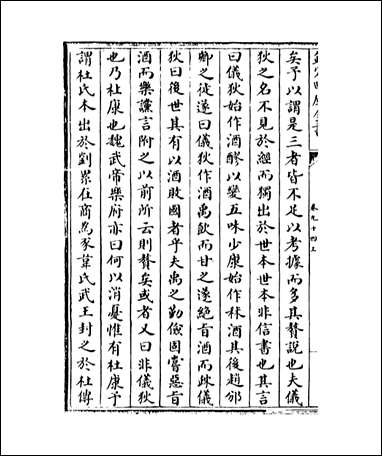 欽定四庫全書
卷九十四上
矣予以謂是三者皆不足以考據而多其贅說也夫儀
狄之名不見於經而獨出於世本世本非信書也其言
曰儀狄始作酒醪以變五味少康始作秫酒其後趙邠
卿之徒遂曰儀狄作酒禹飲而甘之遂絕㫖酒而疎儀
狄曰後世其有以酒敗國者乎夫禹之勤儉固嘗惡㫖
酒而樂讜言附之以前所云則贅矣或者又曰非儀狄
也乃杜康也魏武帝樂府亦曰何以消憂惟有杜康予
謂杜氏本出於劉累在商為豕韋氏武王封之於杜傳